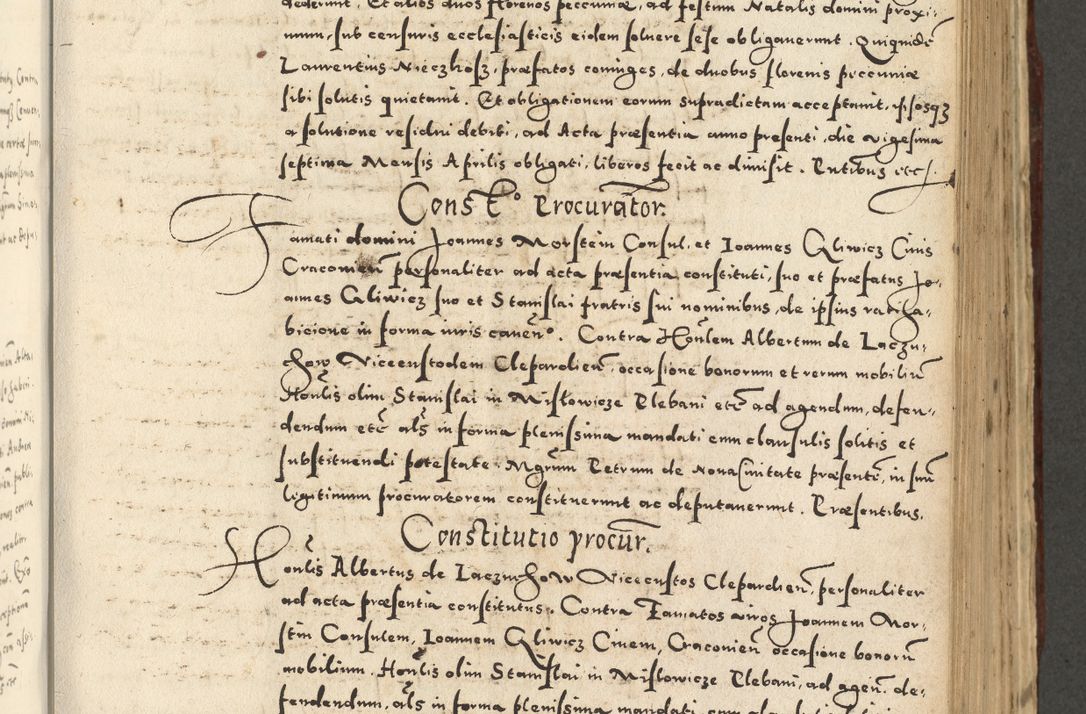 dederunt. Et alios duos florenos pecuniæ, ad festum Natalis domini proxi-
mum, sub censuris ecclesiasticis eidem soluere sese obligauerunt. Quiquidē
Laurentius Nieczkosz, præfatos coniuges, de duobus florenis pecuniæ
sibi solutis quietauit. Et obligationem eorum supradictam acceptauit, ipsosqz
a solutione residui debiti, ad Acta præsentia anno presenti, die vigesima
septima Mensis Aprilis obligati, liberos fecit ac dimisit. Pntibus etc.
Constō Procurator.
Famati domini Joannes Morstein Consul, et Ioannes Gliwicz Ciuis
Cracouień personaliter ad acta præsentia constituti, suo et præfatus Jo-
annes Gliwicz suo et Stanislai fratris sui nominibus, de ipsius ratiha-
bicione in forma iuris cauenō. Contra Honlem Albertum de Laczu-
chow Vicecustodem Clepardień, occasione bonorum et rerum mobiliū
Honlis olim Stanislai in Mislowicze Plebani etc ad agendum, defen-
dendum etc als in forma plenissima mandati cum clausulis solitis et
substituendi potestate. Mgrum Petrum de Noua Ciuitate præsentē, in suū
legitimum procuratorem constituerunt ac deputauerunt. Præsentibus.
Constitutio procur.
Honlis Albertus de Laczuchow Vicecustos Clepardień, personaliter
ad acta præsentia constitutus. Contra Famatos viros Joannem Mor-
stin Consulem, Ioannem Gliwicz Ciuem, Cracouień occasione bonorū
mobilium. Honlis olim Stanislai in Mislowicze Plebani, ad ageń. de-
fendendum, als in forma plenissima mandati cum